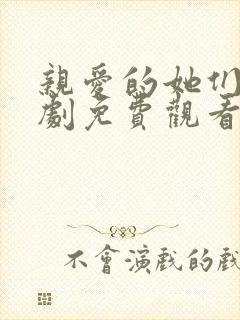 親愛的她们
劇免費觀看
不會演戲的戲